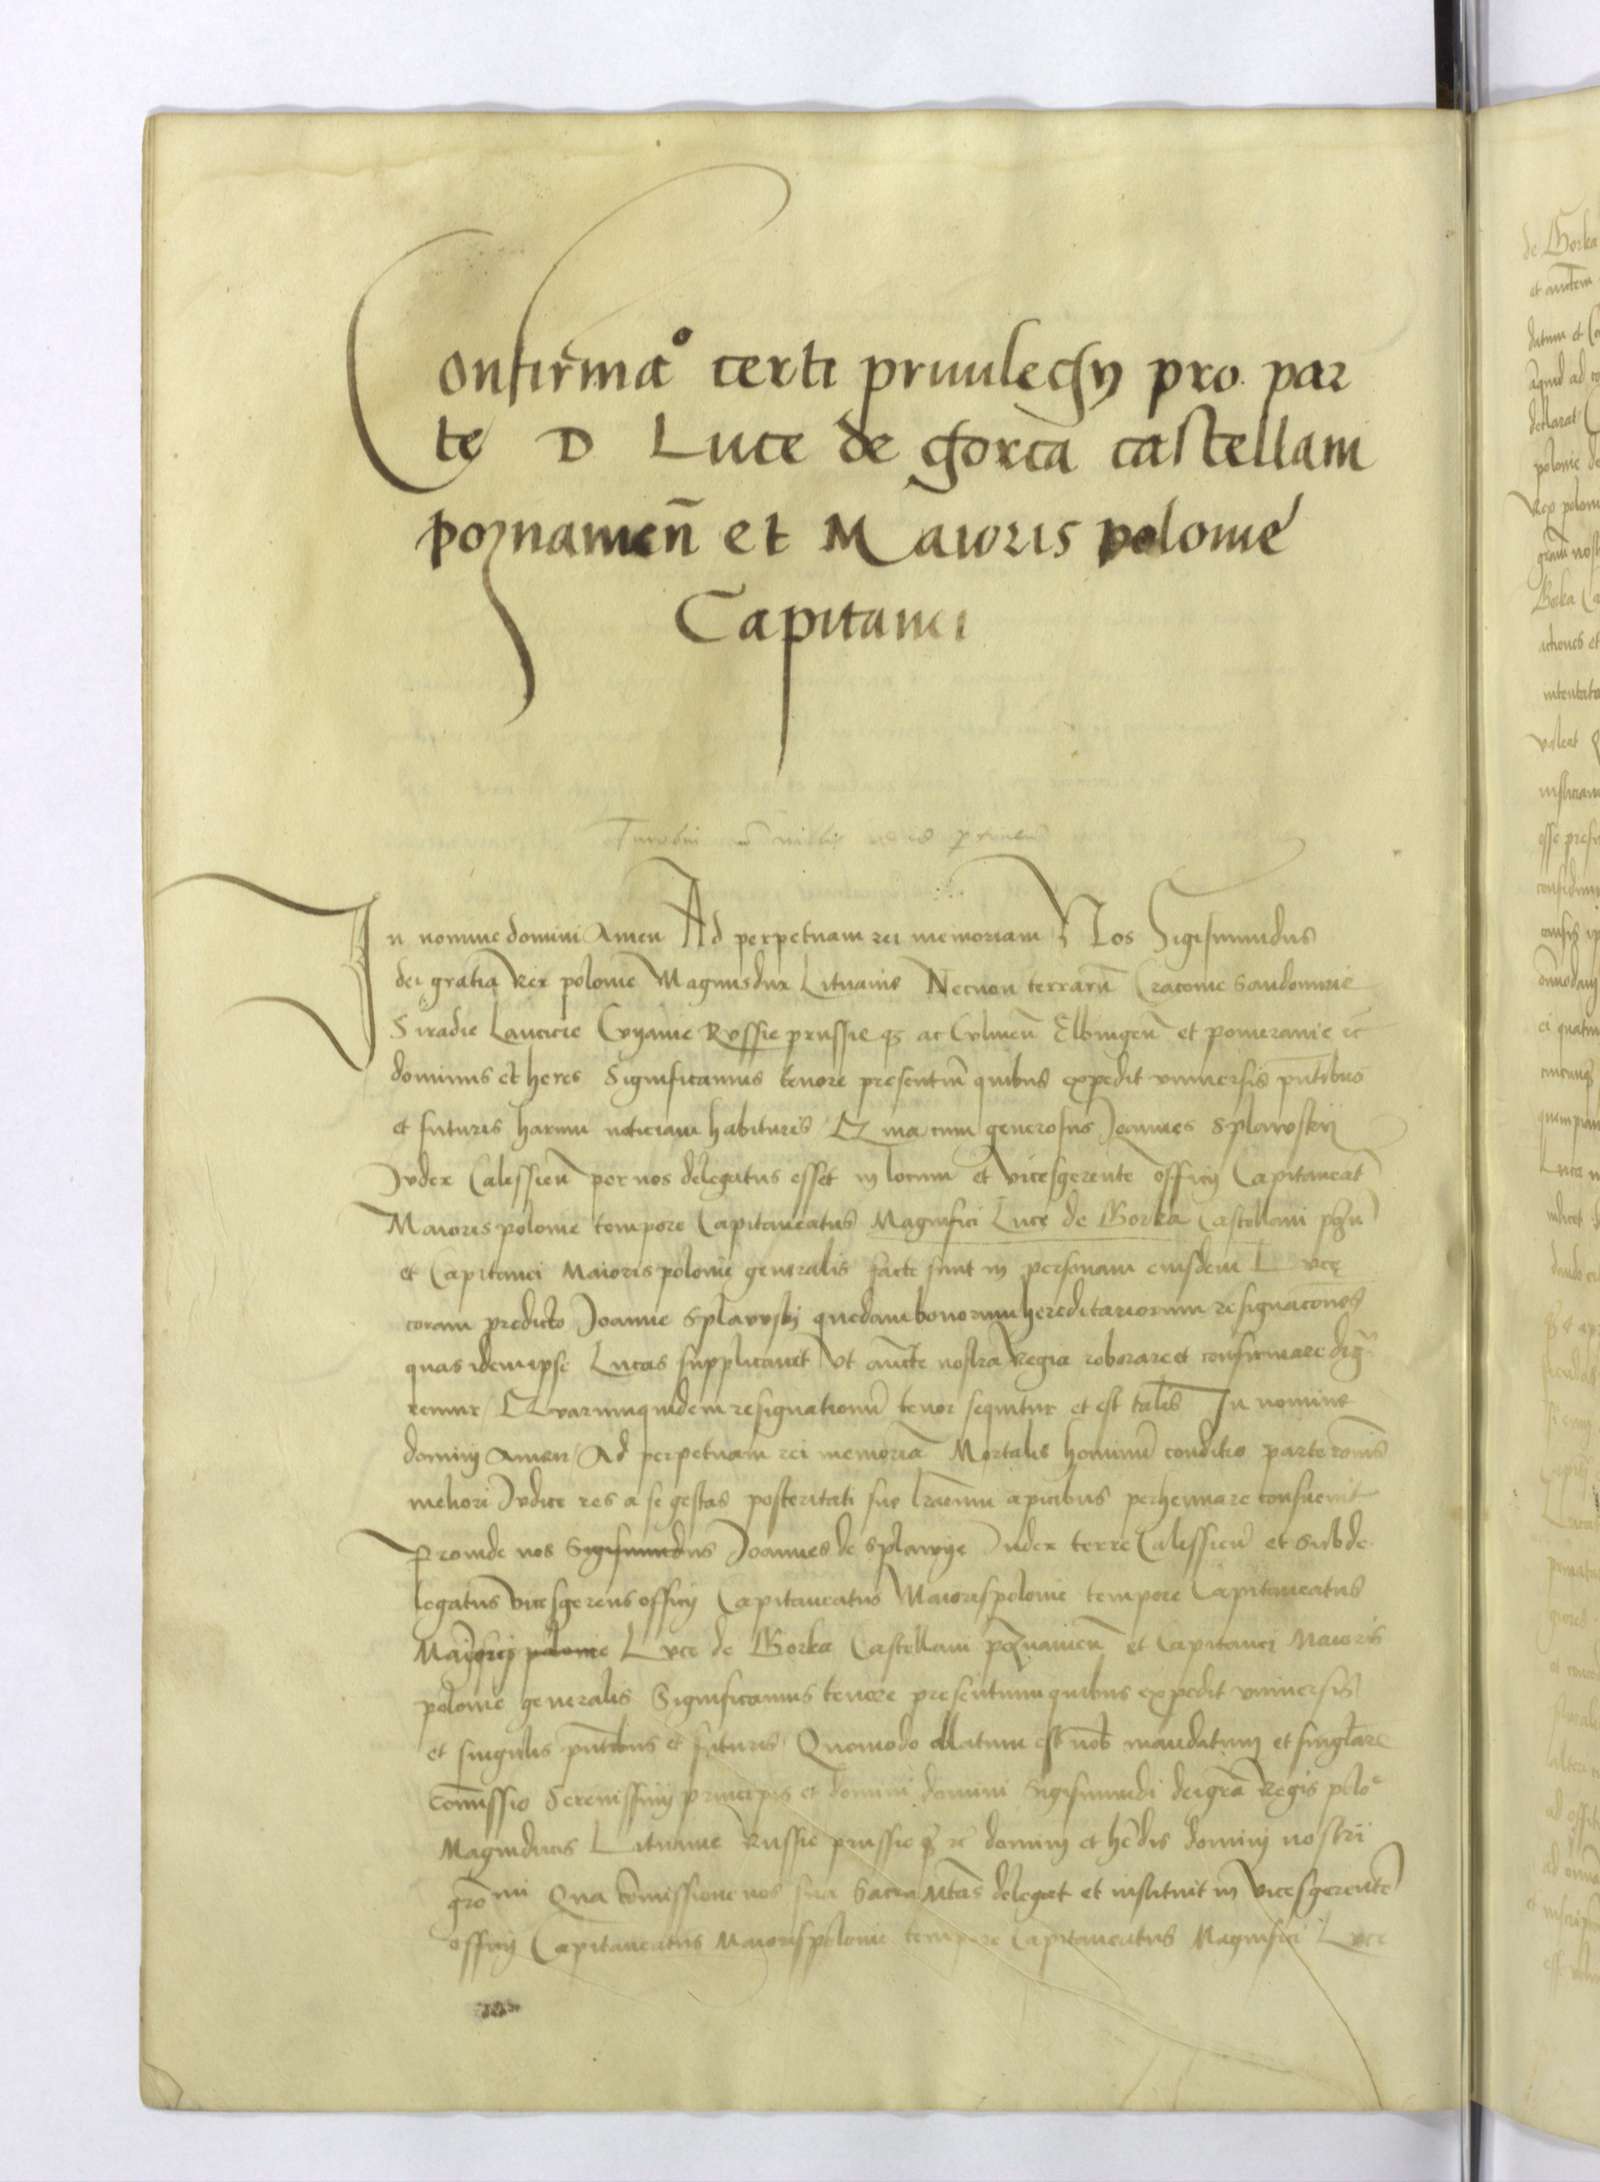 Confirmaco certi privilegij pro par
te D Luce de gorca castellani
poznanien et Maioris polonie
Capitanei
In nomine domini Amen Ad perpetuam rei memoriam Nos Sigismundus
dei gratia Rex polonie Magnusdux Lituanie Necnon terraru Cracovie Sandomirie
Siradie Lancicie Cuyavie Russie prussieq ac Culmen Elbingen et pomeranie etc
dominus et heres Significamus tenore presentiu quibus expedit universis pntibus
et futuris harum noticiam habituris Q ma cum generosus Joannes Splawskij
Judex Calissien per nos delegatus esset in locum et vicesgerente officij Capitaneat
Maioris polonie tempore Capitaneatus Magnifici Luce de Gorka Castellani pozn
et Capitanei Maioris polonie generalis facte sunt in personam eiusdem Luce
coram predicto Joanne Splawskij quedam bonorum hereditariorum resignacones
quas idem ipse Lucas supplicavit Ut aucte nostra Regia roborare et confirmare dig
remur Quarumquidem resignationu tenor sequitur et est talis In nomine
dominj Amen Ad perpetuam rei memoria Mortalis hominu conditio parte ronis
meliori Judice res a se gestas posteritati sue lrarum apicibus perhennare consuevit
Proinde nos Sigismundus Joannes de Splawye Judex terre Calissien et Subde
legatus vicesgerens officij Capitaneatus Maiorispolonie tempore Capitaneatus
Maiorij polonie Luce de Gorka Castellani poznanien et Capitanei Maioris
polonie generalis Significamus tenore presentium quibus expedit universis
et singulis pntibus et futuris Quomodo allatum est nob mandatum et singlare
comissio Serenissimj principis et domini domini Sigismundi dei gra Regis polo
Magniducis Lituanie Russie prussie q etc dominj et hedis dominj nostri
gromi Qua comissione nos sua Sacra Mtas delegat et instituit in vicesgerente
officij Capitaneatus Maiorispolonie tempore Capitaneatus Magnifici Luce